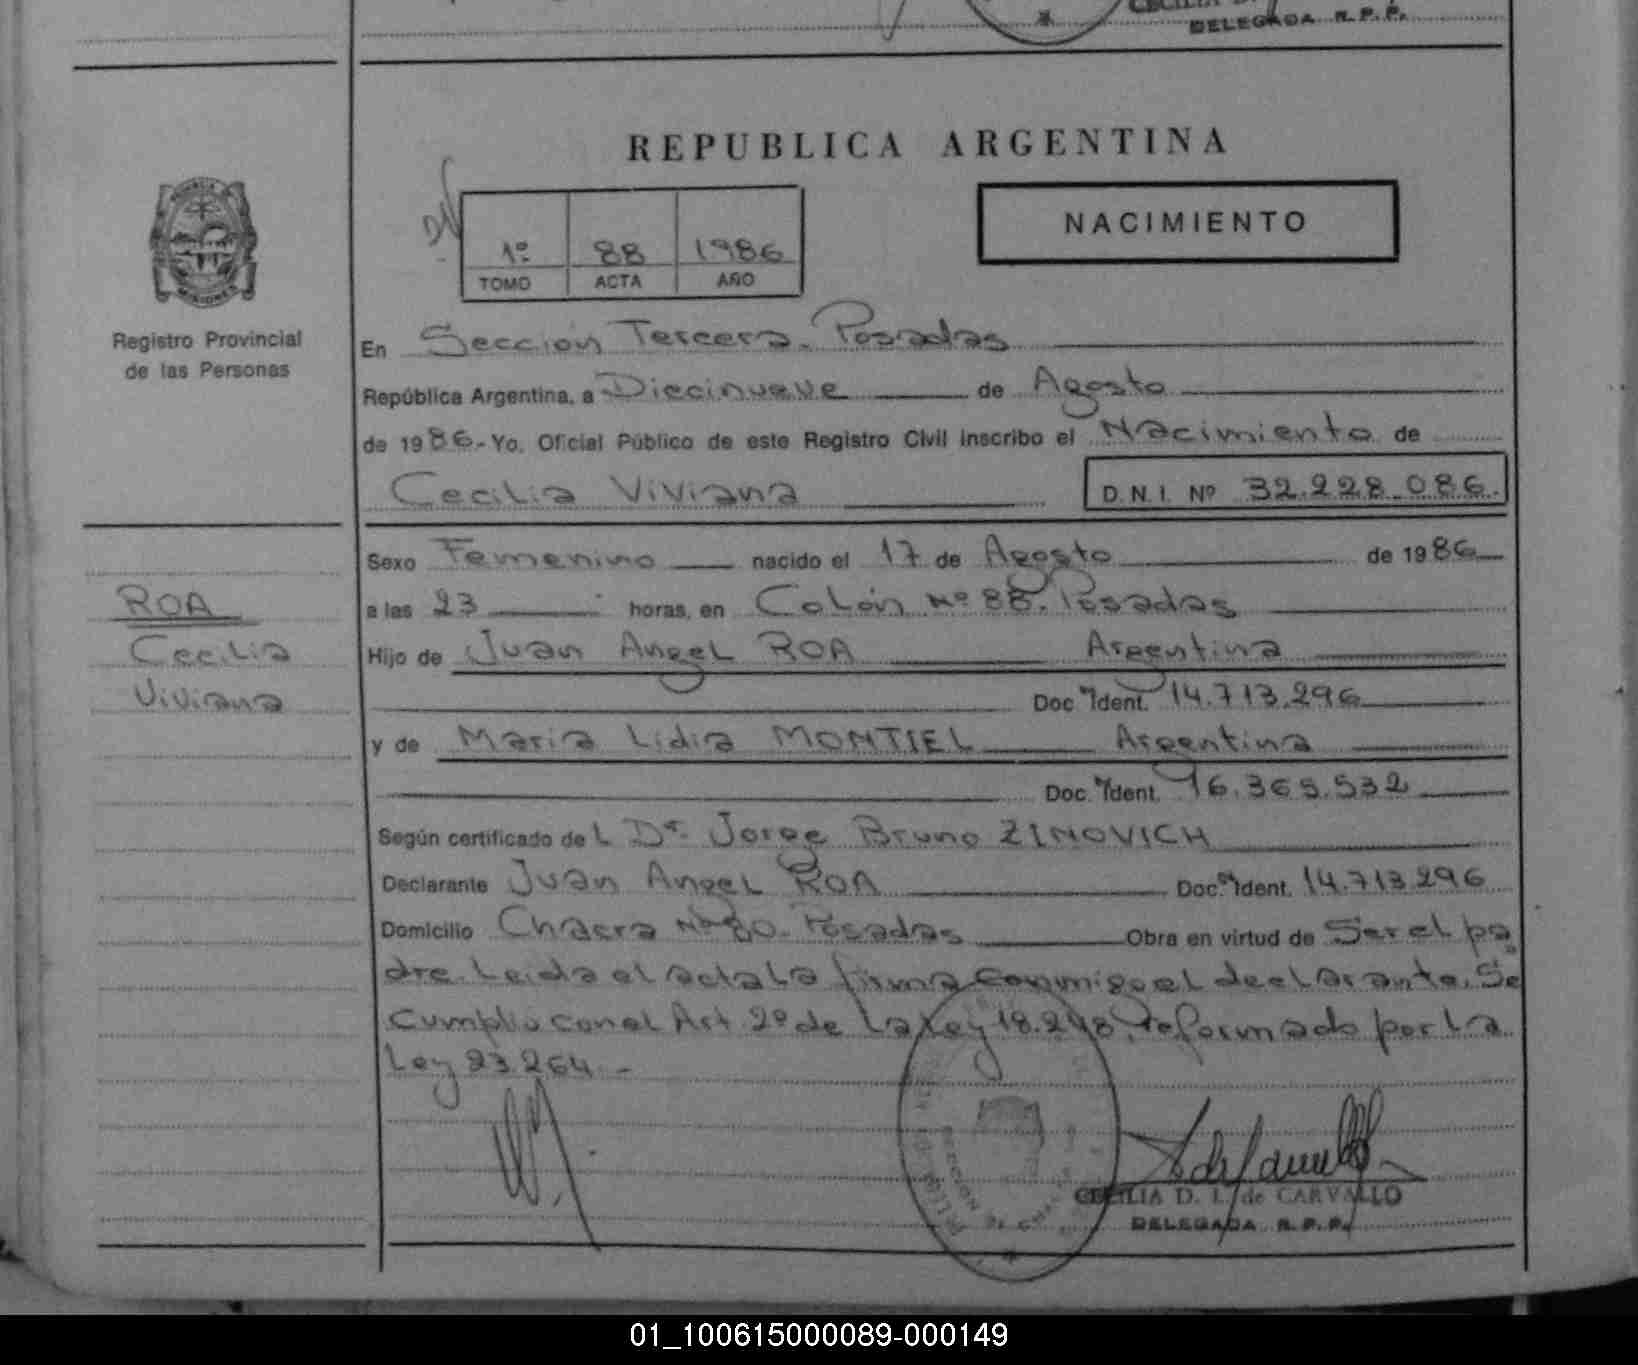 DELEGADA R. P. P.
REPUBLICA ARGENTINA
NACIMIENTO
1º 88 1986
TOMO ACTA AÑO
MISIONES
Registro Provincial
de las Personas
En Sección Tercera. Posadas
República Argentina, a Diecinueve de Agosto
de 1986.- Yo, Oficial Público de este Registro Civil inscribo el Nacimiento de
Cecilia Viviana D. N. I. Nº 32.228.086.
Sexo Femenino nacido el 17 de Agosto de 1986
ROA
Cecilia
Viviana
a las 23 horas, en Colón Nº 88. Posadas
Hijo de Juan Angel ROA Argentina
Doc. Ident. 14.713.296
y de Maria Lidia MONTIEL Argentina
Doc. Ident. 16.365.532
Según certificado del Dr. Jorge Bruno ZIMOVICH
Declarante Juan Angel ROA Doc. Ident. 14.713.296
Domicilio Chacra Nº 80. Posadas Obra en virtud de Ser el pa
dre. Leida el acta la firma conmigo el declarante. Se
cumplio con el Art. 2º de La Ley 18.248, reformado por La
Ley 23.264.-
CECILIA D. L. de CARVALLO
DELEGADA R. P. P.
01_100615000089-000149